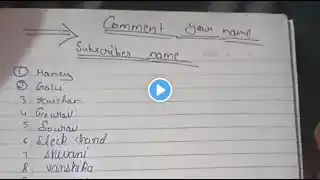 Comment your name
Subscriber name
1 Honey
2 Golu
3
4 Gourav
5 Sourav
6 chand
7 Shivani
8 vanshika